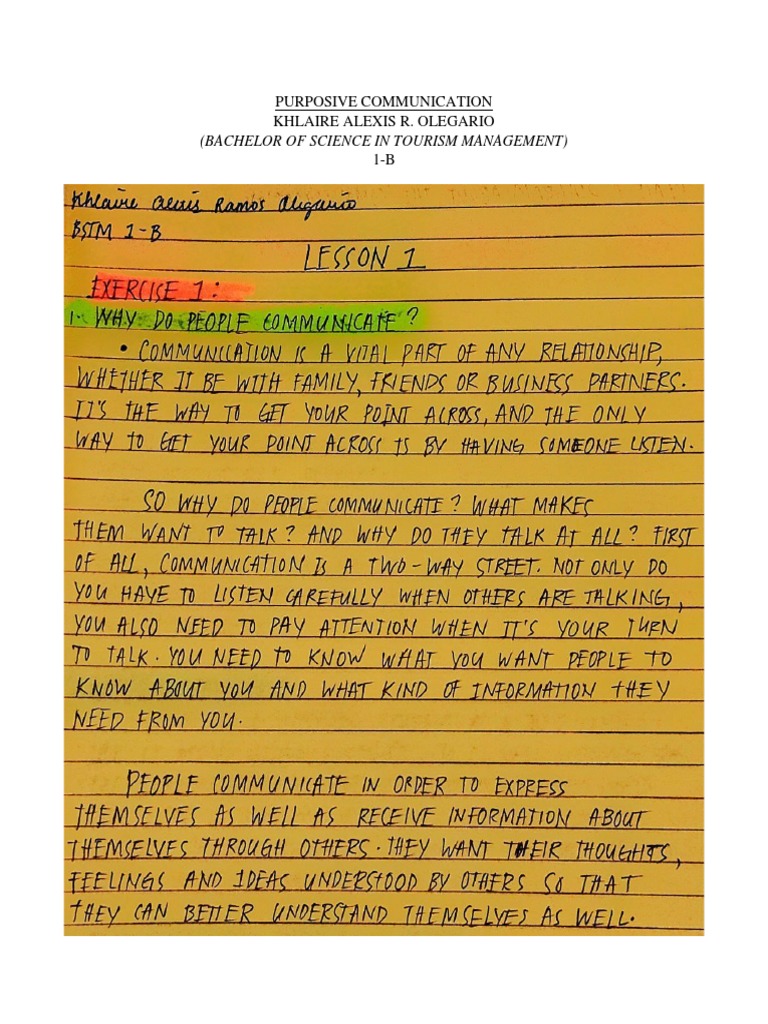 PURPOSIVE COMMUNICATION
KHLAIRE ALEXIS R. OLEGARIO
(BACHELOR OF SCIENCE IN TOURISM MANAGEMENT)
1-B
Khlaire Alexis Ramos Oligario
BSTM 1-B
LESSON 1
EXERCISE 1:
1. WHY DO PEOPLE COMMUNICATE?
• COMMUNICATION IS A VITAL PART OF ANY RELATIONSHIP,
WHETHER IT BE WITH FAMILY, FRIENDS OR BUSINESS PARTNERS.
IT'S THE WAY TO GET YOUR POINT ACROSS, AND THE ONLY
WAY TO GET YOUR POINT ACROSS IS BY HAVING SOMEONE LISTEN.
SO WHY DO PEOPLE COMMUNICATE? WHAT MAKES
THEM WANT TO TALK? AND WHY DO THEY TALK AT ALL? FIRST
OF ALL, COMMUNICATION IS A TWO-WAY STREET. NOT ONLY DO
YOU HAVE TO LISTEN CAREFULLY WHEN OTHERS ARE TALKING,
YOU ALSO NEED TO PAY ATTENTION WHEN IT'S YOUR TURN
TO TALK. YOU NEED TO KNOW WHAT YOU WANT PEOPLE TO
KNOW ABOUT YOU AND WHAT KIND OF INFORMATION THEY
NEED FROM YOU.
PEOPLE COMMUNICATE IN ORDER TO EXPRESS
THEMSELVES AS WELL AS RECEIVE INFORMATION ABOUT
THEMSELVES THROUGH OTHERS. THEY WANT THEIR THOUGHTS,
FEELINGS AND IDEAS UNDERSTOOD BY OTHERS SO THAT
THEY CAN BETTER UNDERSTAND THEMSELVES AS WELL.